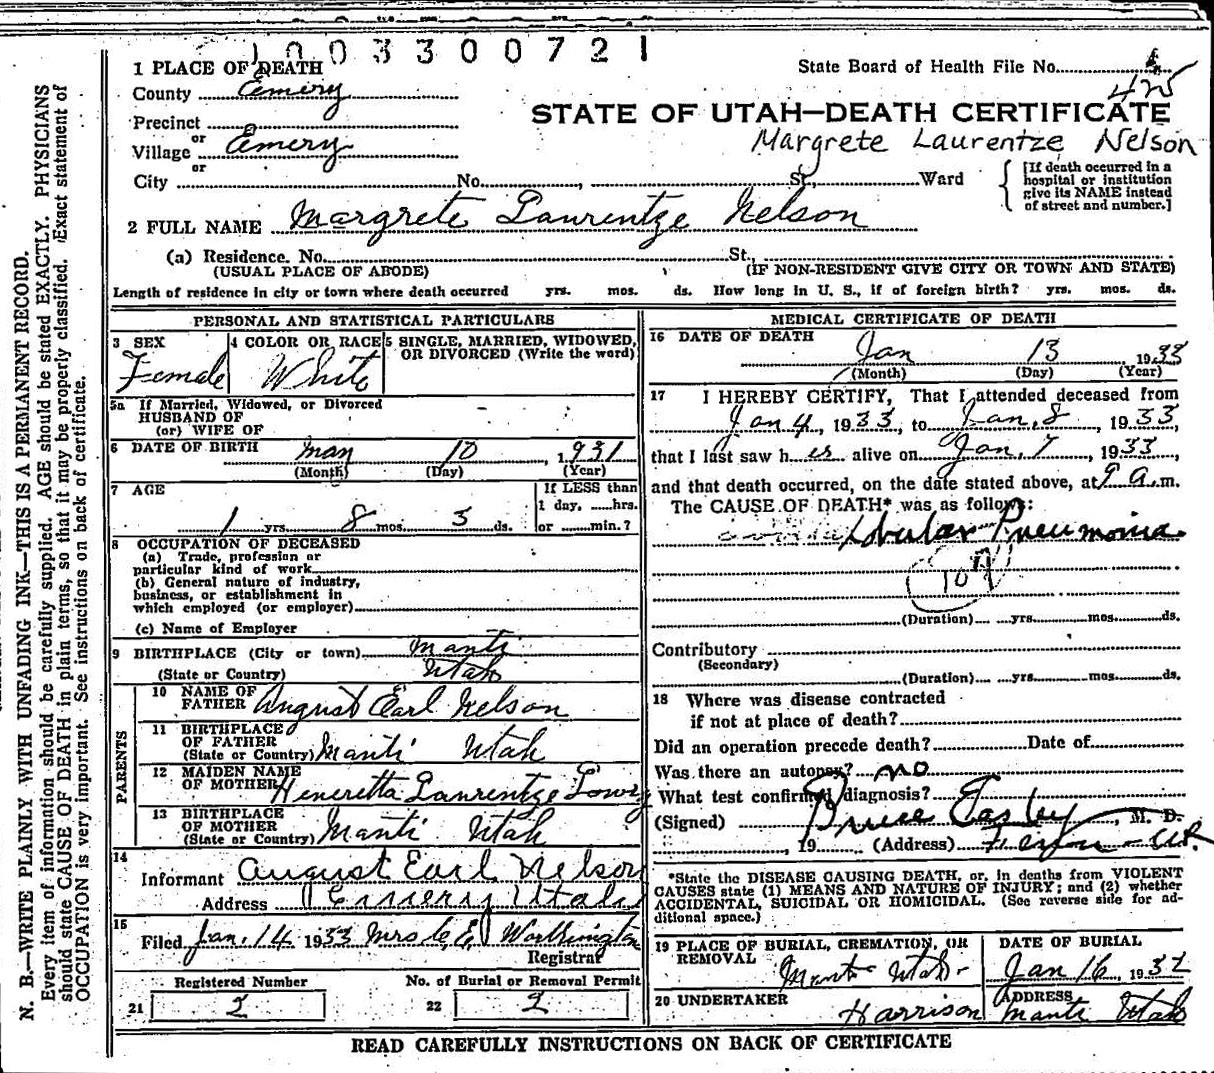 1003300721
1 PLACE OF DEATH
State Board of Health File No.
425
County Emery
STATE OF UTAH—DEATH CERTIFICATE
Precinct
or
Margrete Laurentze Nelson
Village Emery
or
City No. , St., Ward
[If death occurred in a
hospital or institution
give its NAME instead
of street and number.]
2 FULL NAME Margrete Laurentze Nelson
(a) Residence. No. St.,
(USUAL PLACE OF ABODE) (IF NON-RESIDENT GIVE CITY OR TOWN AND STATE)
Length of residence in city or town where death occurred yrs. mos. ds. How long in U. S., if of foreign birth? yrs. mos. ds.
PERSONAL AND STATISTICAL PARTICULARS
3 SEX 4 COLOR OR RACE 5 SINGLE, MARRIED, WIDOWED,
OR DIVORCED (Write the word)
Female White
5a If Married, Widowed, or Divorced
HUSBAND OF
(or) WIFE OF
6 DATE OF BIRTH May 10, 1931
(Month) (Day) (Year)
7 AGE
If LESS than
1 day, hrs.
1 yrs 8 mos. 3 ds. or min.?
8 OCCUPATION OF DECEASED
(a) Trade, profession or
particular kind of work
(b) General nature of industry,
business, or establishment in
which employed (or employer)
(c) Name of Employer
9 BIRTHPLACE (City or town) Manti
(State or Country) Utah
PARENTS
10 NAME OF
FATHER August Earl Nelson
11 BIRTHPLACE
OF FATHER
(State or Country) Manti Utah
12 MAIDEN NAME
OF MOTHER Heneretta Laurentze Lowry
13 BIRTHPLACE
OF MOTHER
(State or Country) Manti Utah
14
Informant August Earl Nelson
Address Emery Utah
15
Filed Jan. 14 1933 Mrs C E Worthington
Registrar
Registered Number No. of Burial or Removal Permit
21 2 22 2
MEDICAL CERTIFICATE OF DEATH
16 DATE OF DEATH
Jan 13 1933
(Month) (Day) (Year)
17 I HEREBY CERTIFY, That I attended deceased from
Jan 4, 1933, to Jan. 8, 1933,
that I last saw her alive on Jan. 7, 1933,
and that death occurred, on the date stated above, at 9 a.m.
The CAUSE OF DEATH* was as follows:
Lobular Pneumonia
107
(Duration) yrs. mos. ds.
Contributory
(Secondary)
(Duration) yrs. mos. ds.
18 Where was disease contracted
if not at place of death?
Did an operation precede death? Date of
Was there an autopsy? no
What test confirmed diagnosis?
(Signed) Bruce Easley, M. D.
, 19 (Address) Ferron - Ut.
*State the DISEASE CAUSING DEATH, or, in deaths from VIOLENT
CAUSES state (1) MEANS AND NATURE OF INJURY; and (2) whether
ACCIDENTAL, SUICIDAL OR HOMICIDAL. (See reverse side for ad-
ditional space.)
19 PLACE OF BURIAL, CREMATION, OR
REMOVAL
Manti Utah
DATE OF BURIAL
Jan 16, 1932
20 UNDERTAKER
Harrison
ADDRESS
Manti Utah
READ CAREFULLY INSTRUCTIONS ON BACK OF CERTIFICATE
N. B.—WRITE PLAINLY WITH UNFADING INK—THIS IS A PERMANENT RECORD.
Every item of information should be carefully supplied. AGE should be stated EXACTLY. PHYSICIANS
should state CAUSE OF DEATH in plain terms, so that it may be properly classified. Exact statement of
OCCUPATION is very important. See instructions on back of certificate.